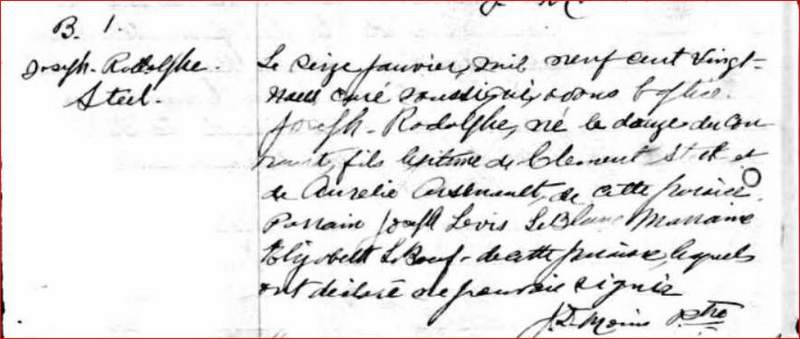 B. 1.
Joseph-Rodolphe
Steel.
Le seize janvier, mil neuf cent vingt-
nous curé soussigné, avons baptisé
Joseph-Rodolphe, né le douze du cou-
rant, fils légitime de Clement et
de Aurélie Arsenault, de cette paroisse.
Parrain Joseph Levis LeBlanc Marraine
Elizabeth LeBouf-de cette paroisse, lesquels
ont déclaré ne pouvoir signer
Ptre